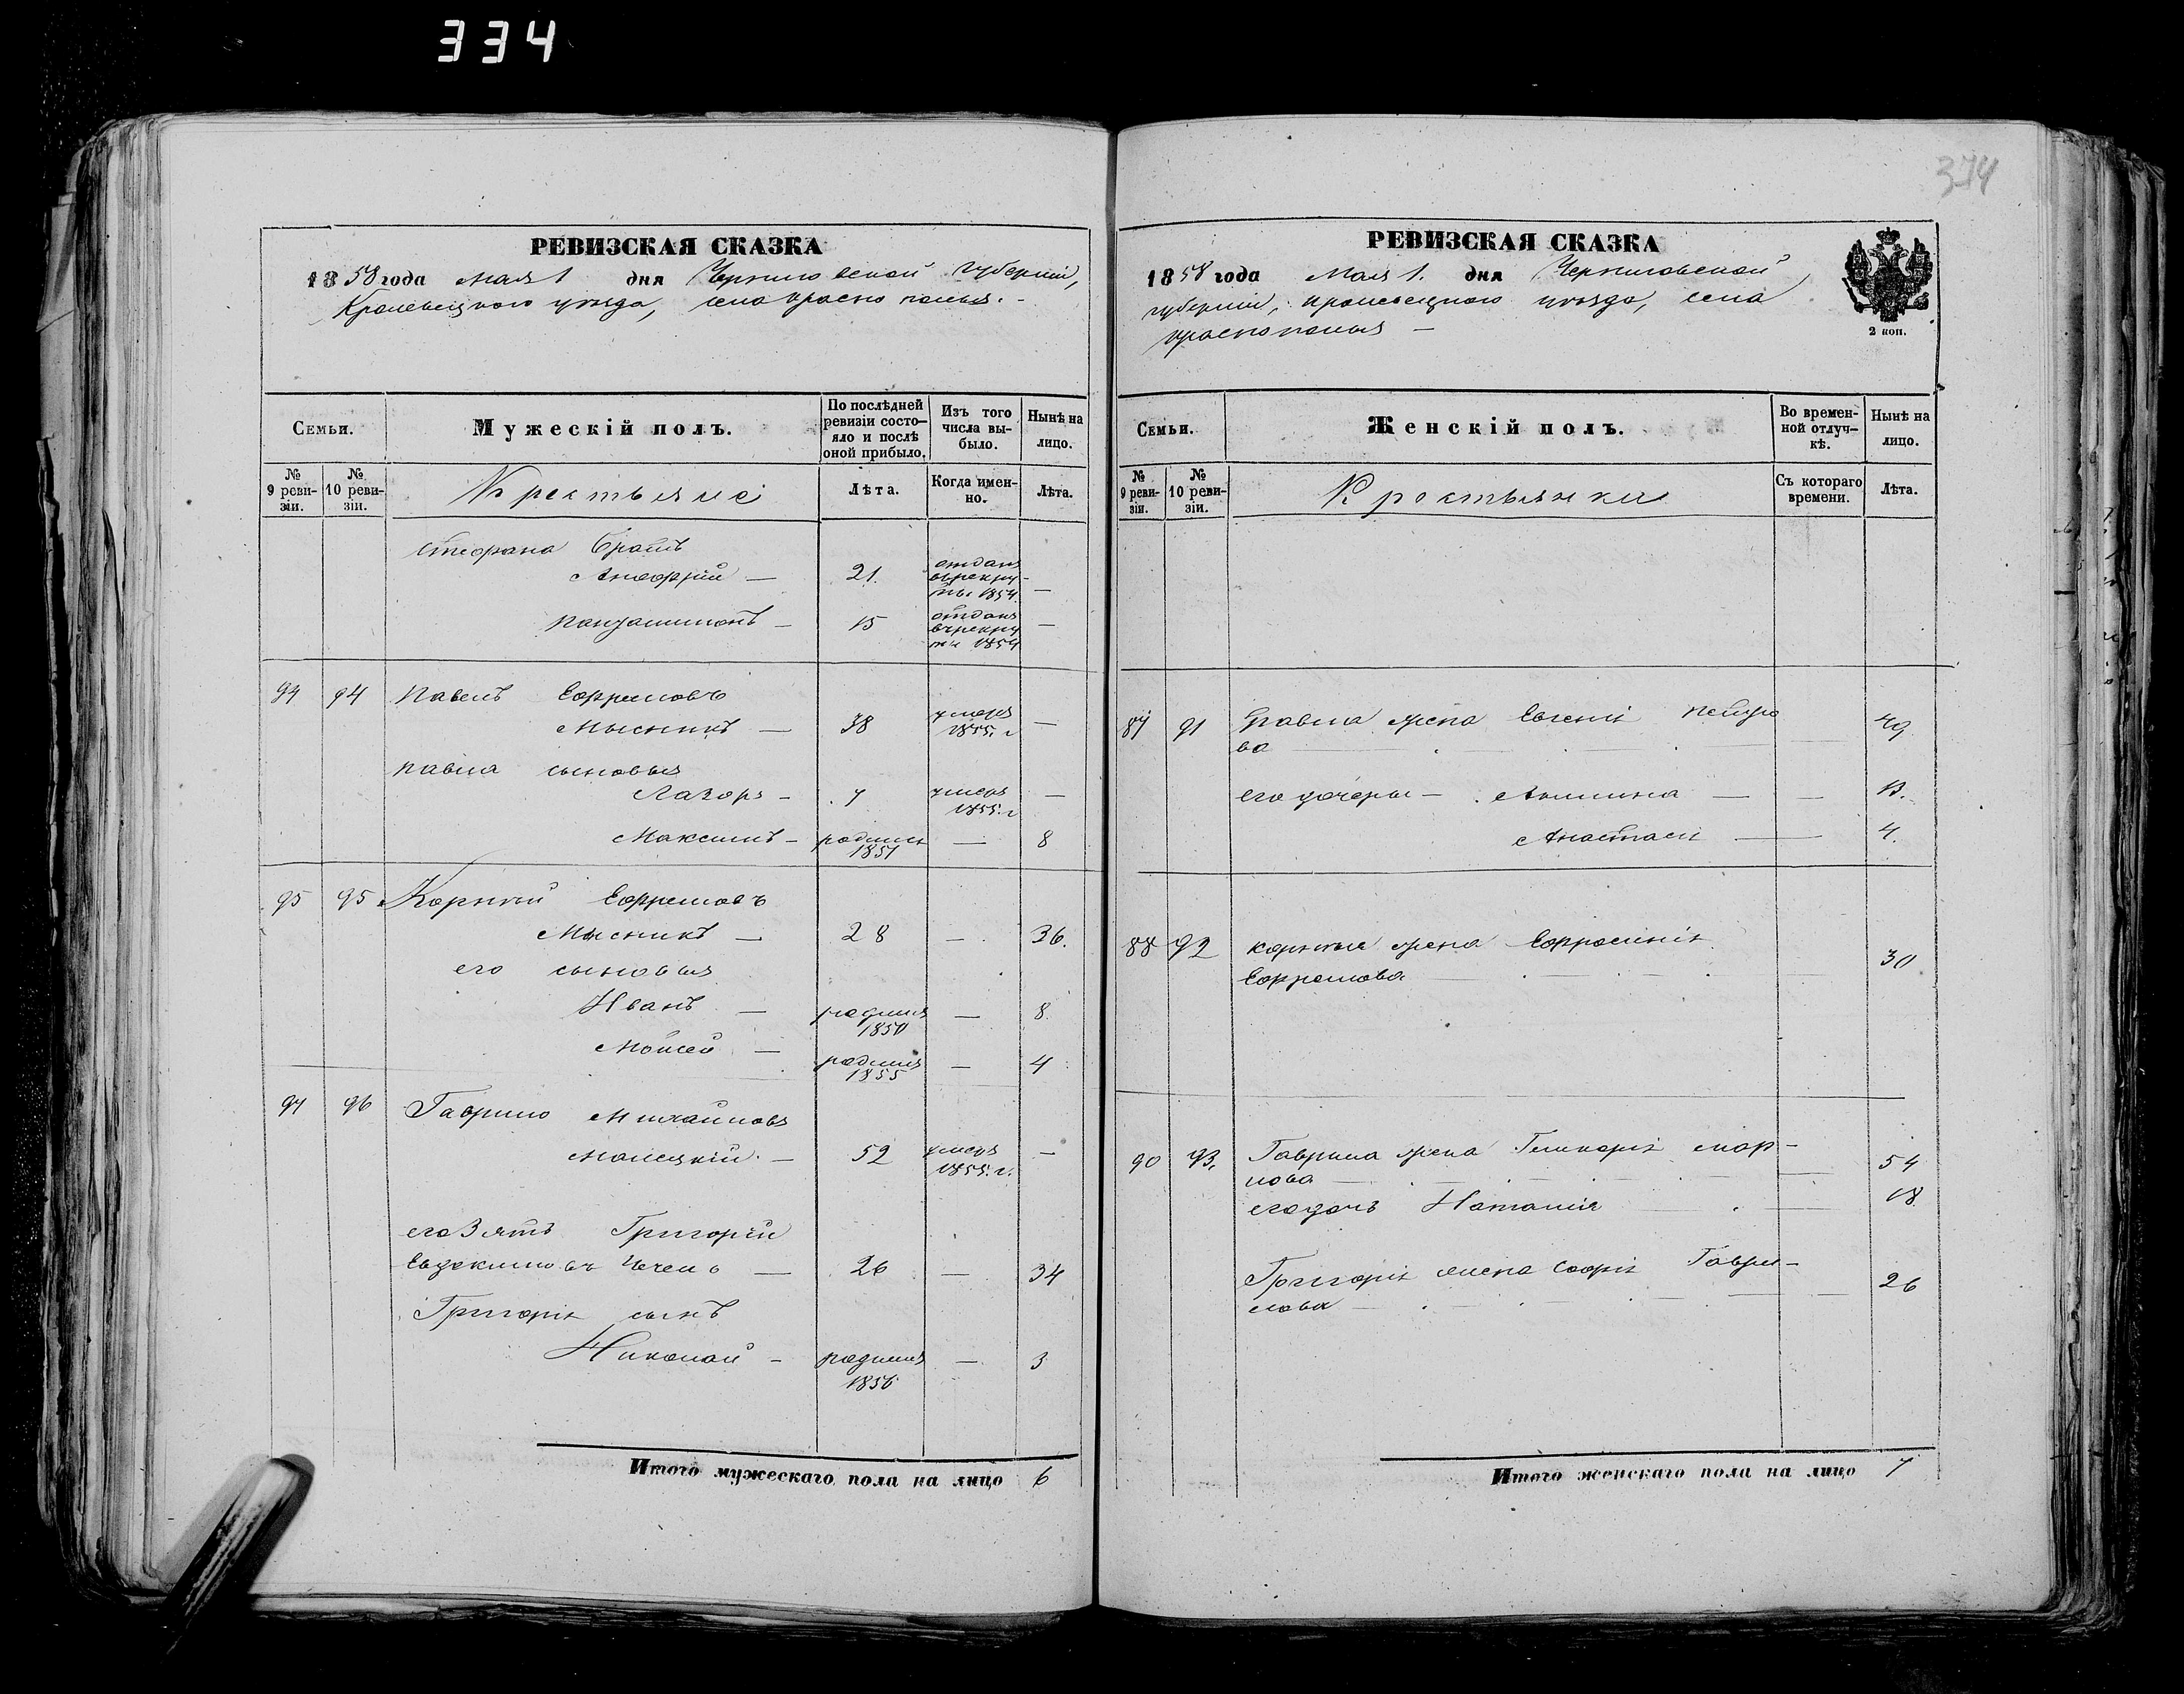 334
374
РЕВИЗСКАЯ СКАЗКА
1858 года Мая 1 дня Черниговской Губерніи,
Кролевецкого уѣзда, села Краснополья. -
Семьи.
Мужескій полъ.
По послѣдней ревизіи состо-
яло и послѣ
оной прибыло.
Изъ того
числа вы-
было.
Нынѣ на
лицо.
№
9 реви-
зіи.
№
10 реви-
зіи.
Крестьяне
Лѣта.
Когда имен-
но.
Лѣта.
Стефана братъ
21. отданъ
въ рекру-
ты 1854 —
15 отданъ
въ рекру
ты 1854 —
94 94 Павелъ Ефремовъ
Мысникъ — 38 умеръ
1855. г —
Павла сыновья
Лазарь - 7 умеръ
1855. г —
Максимъ - родился
1851 — 8
95 95 Корнѣй Ефремовъ
Мысникъ — 28 — 36.
его сыновья
Иванъ — родился
1850 — 8.
Мойсей — родился
1855 — 4
97 96 Гаврило Михайловъ
52 умеръ
1855. г. —
его Зять Григорій
Евдокимовъ — 26 — 34
Григорія сынъ
Николай - родился
1856 — 3
Итого мужескаго пола на лицо 6
РЕВИЗСКАЯ СКАЗКА
1858 года Мая 1. дня Черниговской
губерніи, Кролевецкого уѣзда, села
Краснополья —
2 коп.
Семьи.
Женскій полъ.
Во времен-
ной отлуч-
кѣ.
Нынѣ на
лицо.
№
9 реви-
зіи.
№
10 реви-
зіи.
Крестьянки
Съ котораго
времени.
Лѣта.
87 91 Павла жена Евгенія Петро
ва — 49
его дочери — — — 13.
Анастасія — 4.
88 92 Корнѣя жена Ефросинія
Ефремова 30
90 93. Гаврила жена Гликерія Кар-
пова — 54
его дочь Наталія — 18
Григорія жена Софія Гаври-
лова — 26
Итого женскаго пола на лицо 7